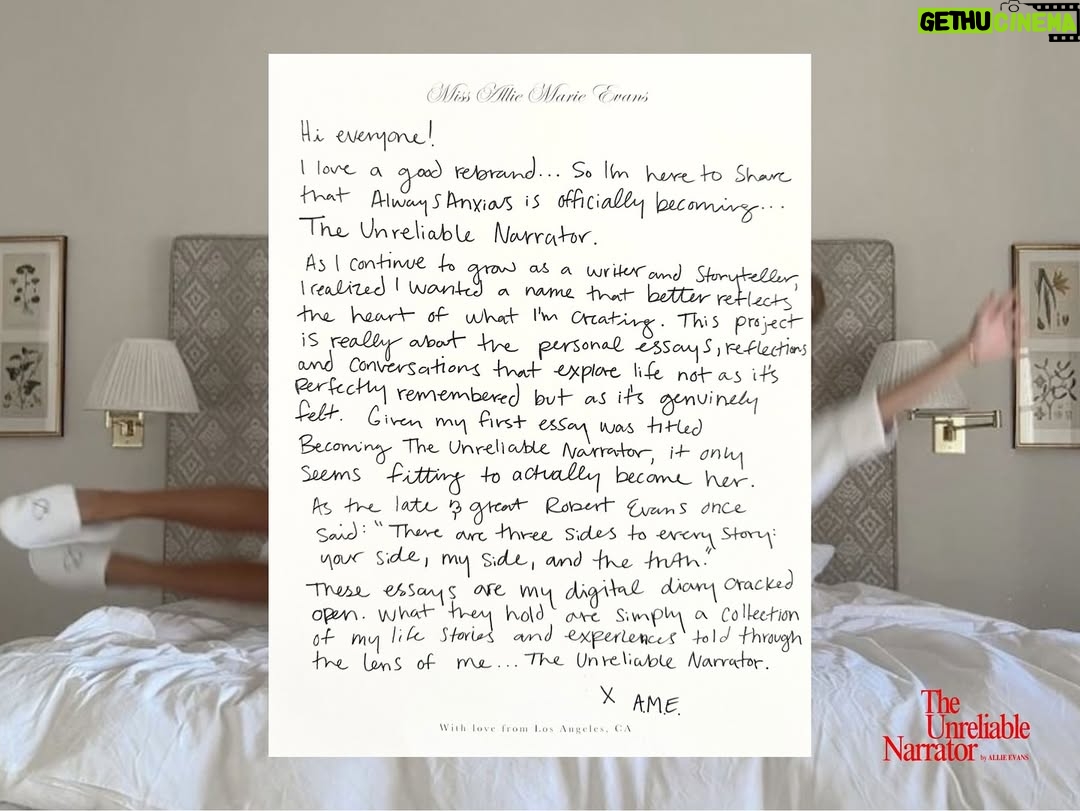 GETHUCINEMA
Miss Allie Marie Evans
Hi everyone!
I love a good rebrand... So I'm here to Share
that AlwaysAnxious is officially becoming...
The Unreliable Narrator.
As I continue to grow as a writer and Storyteller,
I realized I wanted a name that better reflects
the heart of what I'm creating. This project
is really about the personal essays, reflections
and conversations that explore life not as it's
perfectly remembered but as it's genuinely
felt. Given my first essay was titled
Becoming The Unreliable Narrator, it only
seems fitting to actually become her.
As the late & great Robert Evans once
said: "There are three sides to every story:
your side, my side, and the truth."
These essays are my digital diary cracked
open. What they hold are simply a collection
of my life stories and experiences told through
the lens of me... The Unreliable Narrator.
X A.M.E.
With love from Los Angeles, CA
The
Unreliable
Narrator by ALLIE EVANS